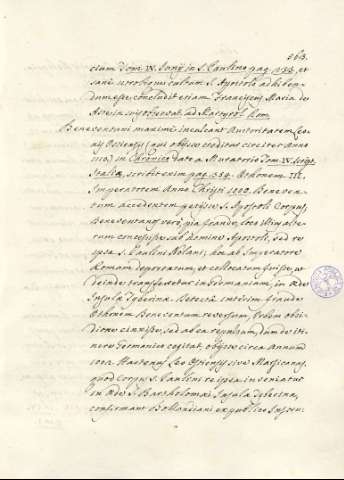 563.
ciam Tom. IV. Junij in S. Paulino pag. 233, et
sanè utrobique cultum S. Apostoli adhiben-
dum esse concludit etiam Franciscus Maria de
Aste in suis observat. ad Martyrol. Rom.
Beneventani maximè inculcant Autoritatem Leo-
nis Ostiensis (qui obijsse creditur circiter Anno
in Chronico dato a Muratorio Tom. IV. Script.
Italiæ, scribit enim pag. Othonem III.
Imperatorem Anno Christi 1000. Beneven-
tum accedentem petijsse S. Apostoli Corpus,
Beneventanos verò pia fraude, loco illius alte-
rum concessisse sub nomine Apostoli, sed re
ipsa S. Paulini Nolani, hoc ab Imperatore
Romam deportatum, et collocatum fuisse, ut
deinde transferretur in Germaniam, in Æde
Insulæ Tyberinæ. Detectâ interim fraude
Othonem Beneventum reversum, Urbem obsi-
dione cinxisse, sed ab ea repulsum, dum de iti-
nere Germanico cogitat, obijsse circa Annum
1002. Hactenus Leo Ostiensis sive Marsicanus,
quod Corpus S. Paulini re ipsa inveniatur
in Æde S. Bartholomæi Insulæ Tyberinæ,
confirmant Bollandiani ex publico Instru-